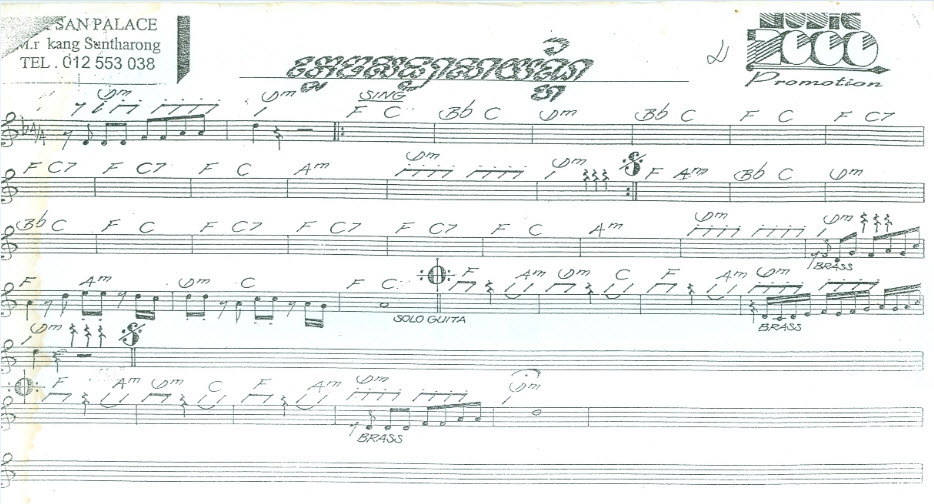 SAN PALACE
M.r kang Suntharong
TEL . 012 553 038
MUSIC
2000
Promotion
SING
Dm Dm F C Bb C Dm Bb C F C F C7
F C7 F C7 F C Am Dm Dm F Am Bb C Dm
Bb C F C F C7 F C7 F C Am Dm Dm
BRASS
F Am Dm C F C F Am Dm C F Am Dm
SOLO GUITA
BRASS
Dm
F Am Dm C F Am Dm Dm
BRASS